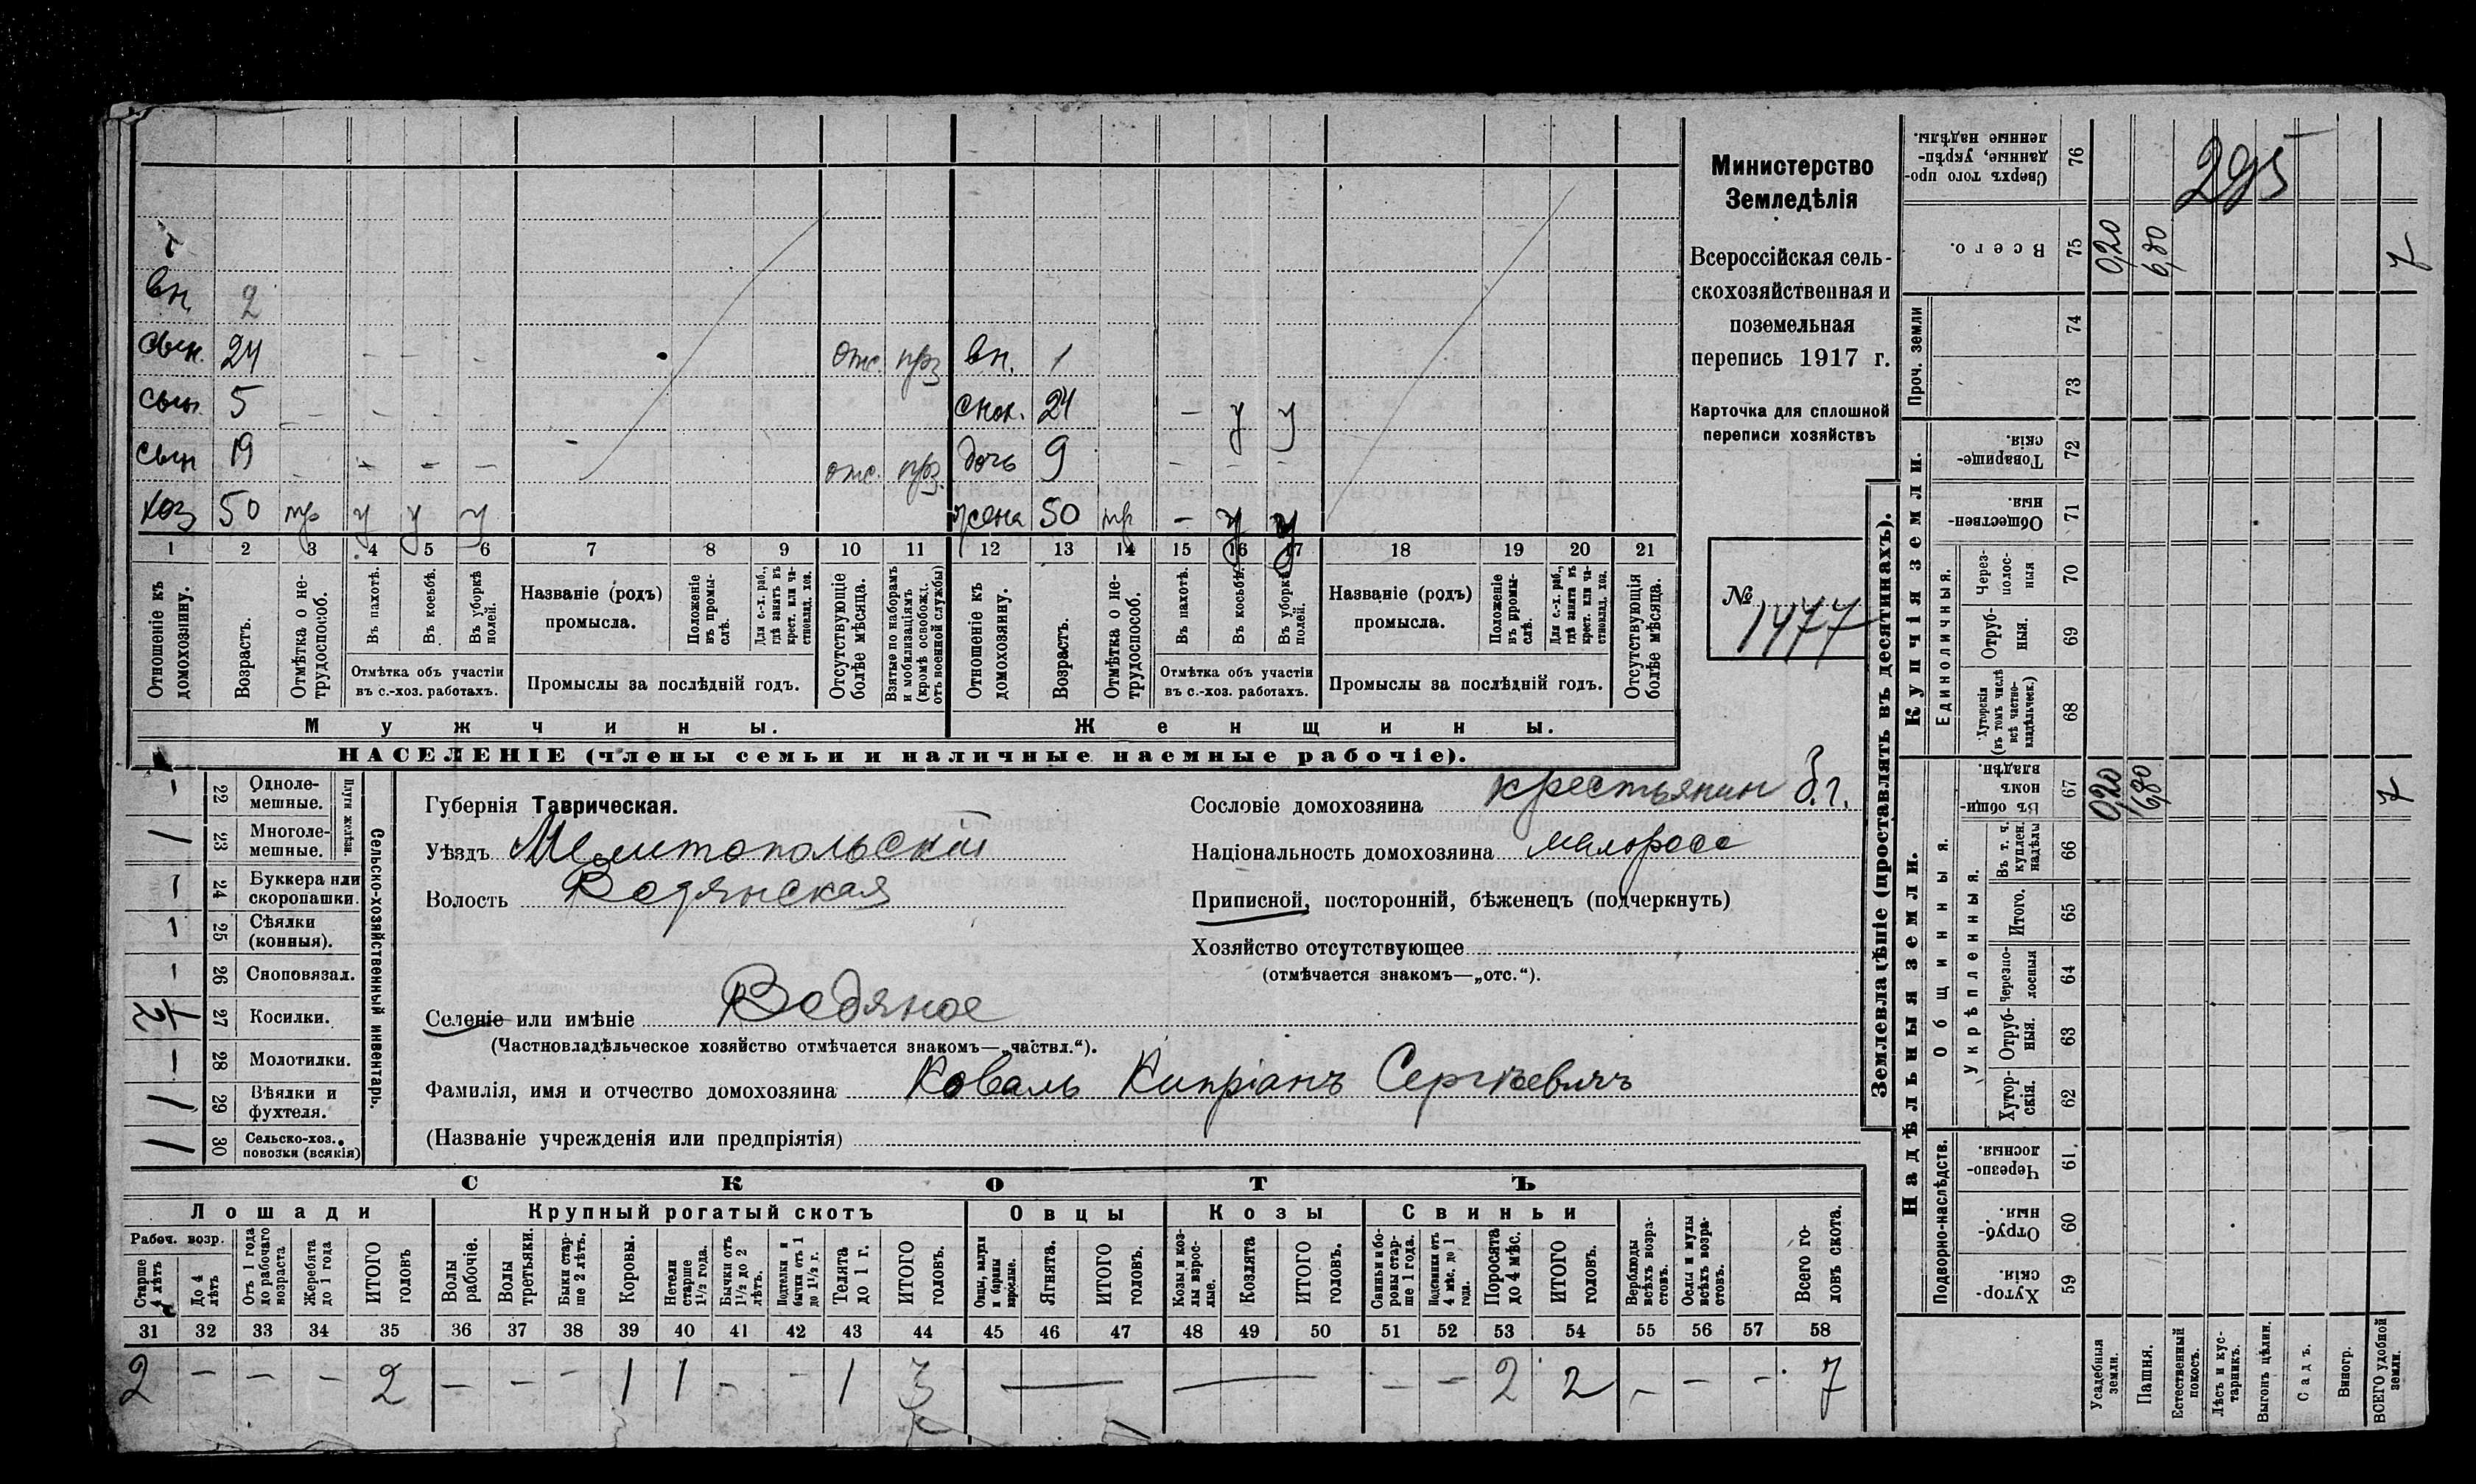 вн. 2
сын. 24 - - - отс. прз вн. 1
сын. 5 - - - - снох. 24 - у у
сын 19 - - - - отс. прз. дочь 9 - - -
хоз 50 тр у у у жена 50 тр - у у
1 2 3 4 5 6 7 8 9 10 11 12 13 14 15 16 17 18 19 20 21
Отношеніе къ домохозяину.
Возрастъ.
Отмѣтка о нетрудоспособ.
Въ пахотѣ.
Въ косьбѣ.
Въ уборкѣ полей.
Отмѣтка объ участіи
въ с.-хоз. работахъ.
Названіе (родъ)
промысла.
Положеніе въ промыслѣ.
Для с.-х. раб., гдѣ занятъ въ крест. или частновлад. хоз.
Промыслы за послѣдній годъ.
Отсутствующіе болѣе мѣсяца.
Взятые по наборамъ и мобилизаціямъ (кромѣ освобожд. отъ военной службы)
Отношеніе къ домохозяину.
Возрастъ.
Отмѣтка о нетрудоспособ.
Въ пахотѣ.
Въ косьбѣ.
Въ уборкѣ полей.
Отмѣтка объ участіи
въ с.-хоз. работахъ.
Названіе (родъ)
промысла.
Положеніе въ промыслѣ.
Для с.-х. раб., гдѣ занята въ крест. или частновлад. хоз.
Промыслы за послѣдній годъ.
Отсутствующія болѣе мѣсяца.
Мужчины.
Женщины.
НАСЕЛЕНІЕ (члены семьи и наличные наемные рабочіе).
Министерство
Земледѣлія
Всероссійская сель-
скохозяйственная и
поземельная
перепись 1917 г.
Карточка для сплошной
переписи хозяйствъ
№ 1477
Сельско-хозяйственный инвентарь.
Плуги желѣзн.
- 22 Однолемешные.
1 23 Многолемешные.
- 24 Буккера или скоропашки.
- 25 Сѣялки (конныя).
- 26 Сноповязал.
1/2 27 Косилки.
- 28 Молотилки.
1 29 Вѣялки и фухтеля.
1 30 Сельско-хоз. повозки (всякія)
Губернія Таврическая.
Уѣздъ Мелитопольскій
Волость Водянская
Сословіе домохозяина крестьянин б. г.
Національность домохозяина малоросс
Приписной, посторонній, бѣженецъ (подчеркнуть)
Хозяйство отсутствующее
(отмѣчается знакомъ—„отс.“).
Селеніе или имѣніе Водяное
(Частновладѣльческое хозяйство отмѣчается знакомъ—„частвл.“).
Фамилія, имя и отчество домохозяина Коваль Кипріанъ Сергѣевичъ
(Названіе учрежденія или предпріятія)
СКОТЪ
Лошади
Крупный рогатый скотъ
Овцы
Козы
Свиньи
Рабоч. возр.
Старше 4 лѣтъ
До 4 лѣтъ
Отъ 1 года до рабочаго возраста
Жеребята до 1 года
ИТОГО головъ
Волы рабочіе.
Волы третьяки.
Быки старше 2 лѣтъ.
Коровы.
Нетели старше 1½ года.
Бычки отъ 1½ до 2 лѣтъ.
Подтелки и бычки отъ 1 до 1½ г.
Телята до 1 г.
ИТОГО головъ.
Овцы, валухи и бараны взрослые.
Ягнята.
ИТОГО головъ.
Козы и козлы взрослые.
Козлята
ИТОГО головъ.
Свиньи и боровы старше 1 года.
Подсвинки отъ 4 мѣс. до 1 года.
Поросята до 4 мѣс.
ИТОГО головъ.
Верблюды всѣхъ возрастовъ.
Ослы и мулы всѣхъ возрастовъ.
Всего головъ скота.
31 32 33 34 35 36 37 38 39 40 41 42 43 44 45 46 47 48 49 50 51 52 53 54 55 56 57 58
2 - - - 2 - - - 1 1 - - 1 3 — — - - 2 2 - - - 7
Землевладѣніе (проставлять въ десятинахъ).
Надѣльныя земли.
Купчія земли.
Проч. земли
Подворно-наслѣдств.
Общинныя.
Укрѣпленныя.
Единоличныя.
Сверхъ того проданные, укрѣпленные надѣлы. 76
295
Всего. 75 0,20 6,80 7
74
73
Товарищескія. 72
Общественныя. 71
Черезполосныя 70
Отрубныя. 69
Хуторскія (въ томъ числѣ всѣ частновладѣльческ.) 68
Въ общинномъ владѣн. 67 0,20 6,80 7
Въ т. ч. куплен. надѣлы 66
Итого. 65
Черезполосныя 64
Отрубныя. 63
Хуторскія. 62
Черезполосныя. 61
Отрубныя. 60
Хуторскія 59
Усадебныя земли.
Пашня.
Естественный покосъ.
Лѣсъ и кустарникъ.
Выгонъ цѣлин.
Садъ.
Виногр.
ВСЕГО удобной земли.